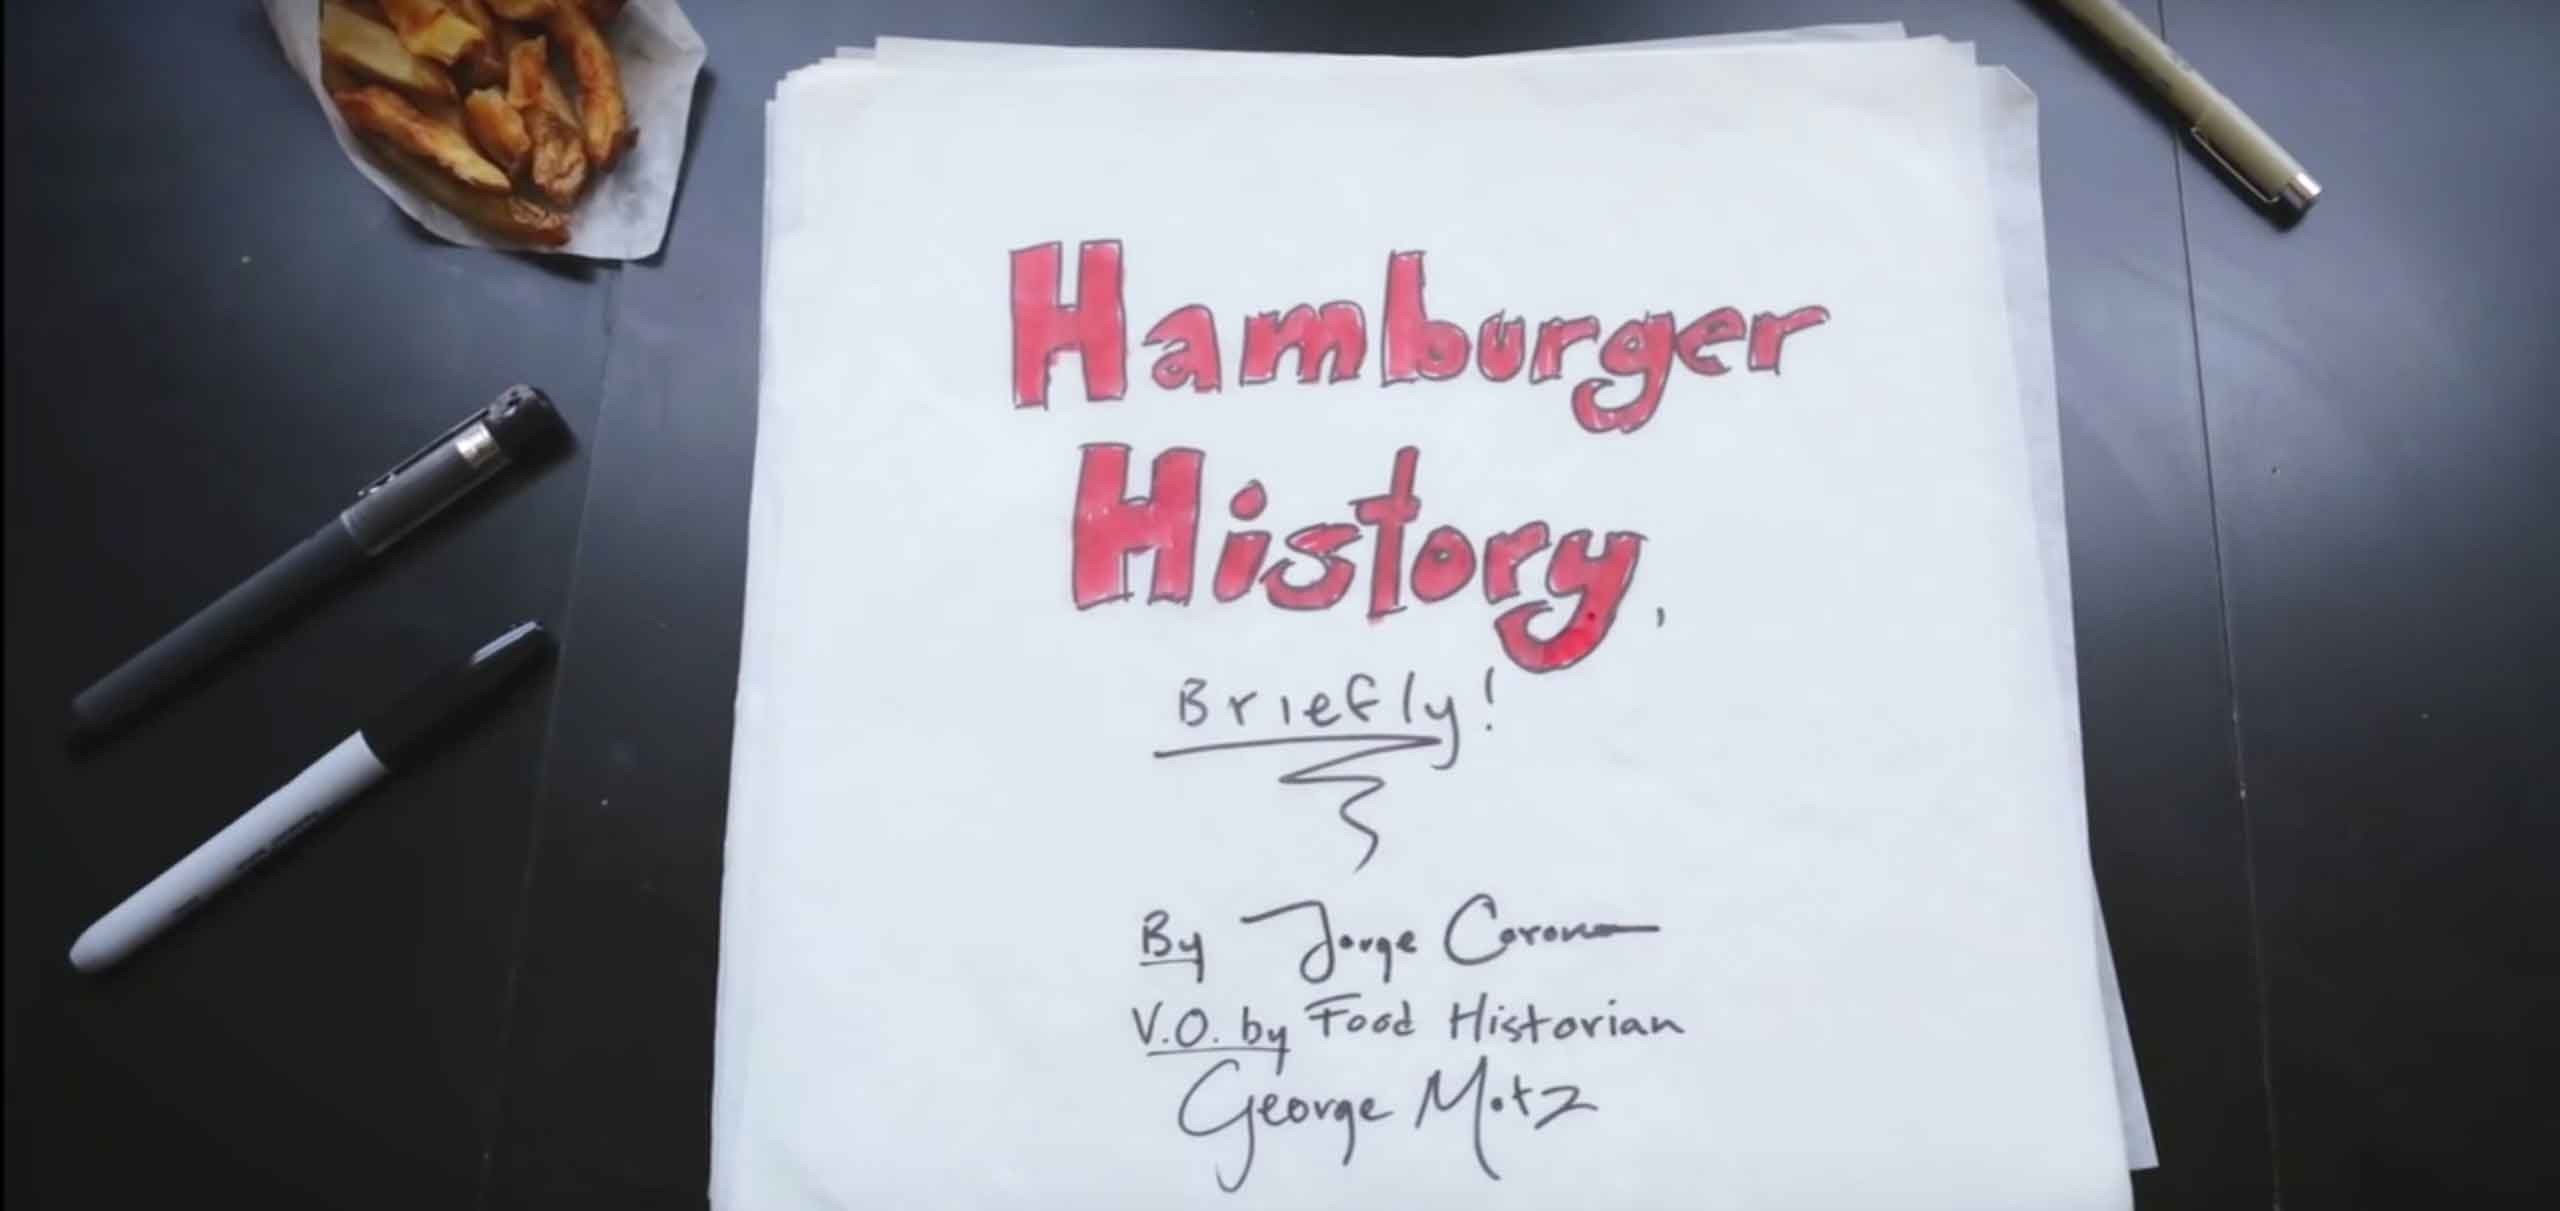 Hamburger
History,
Briefly!
By Jorge Corona
V.O. by Food Historian
George Motz